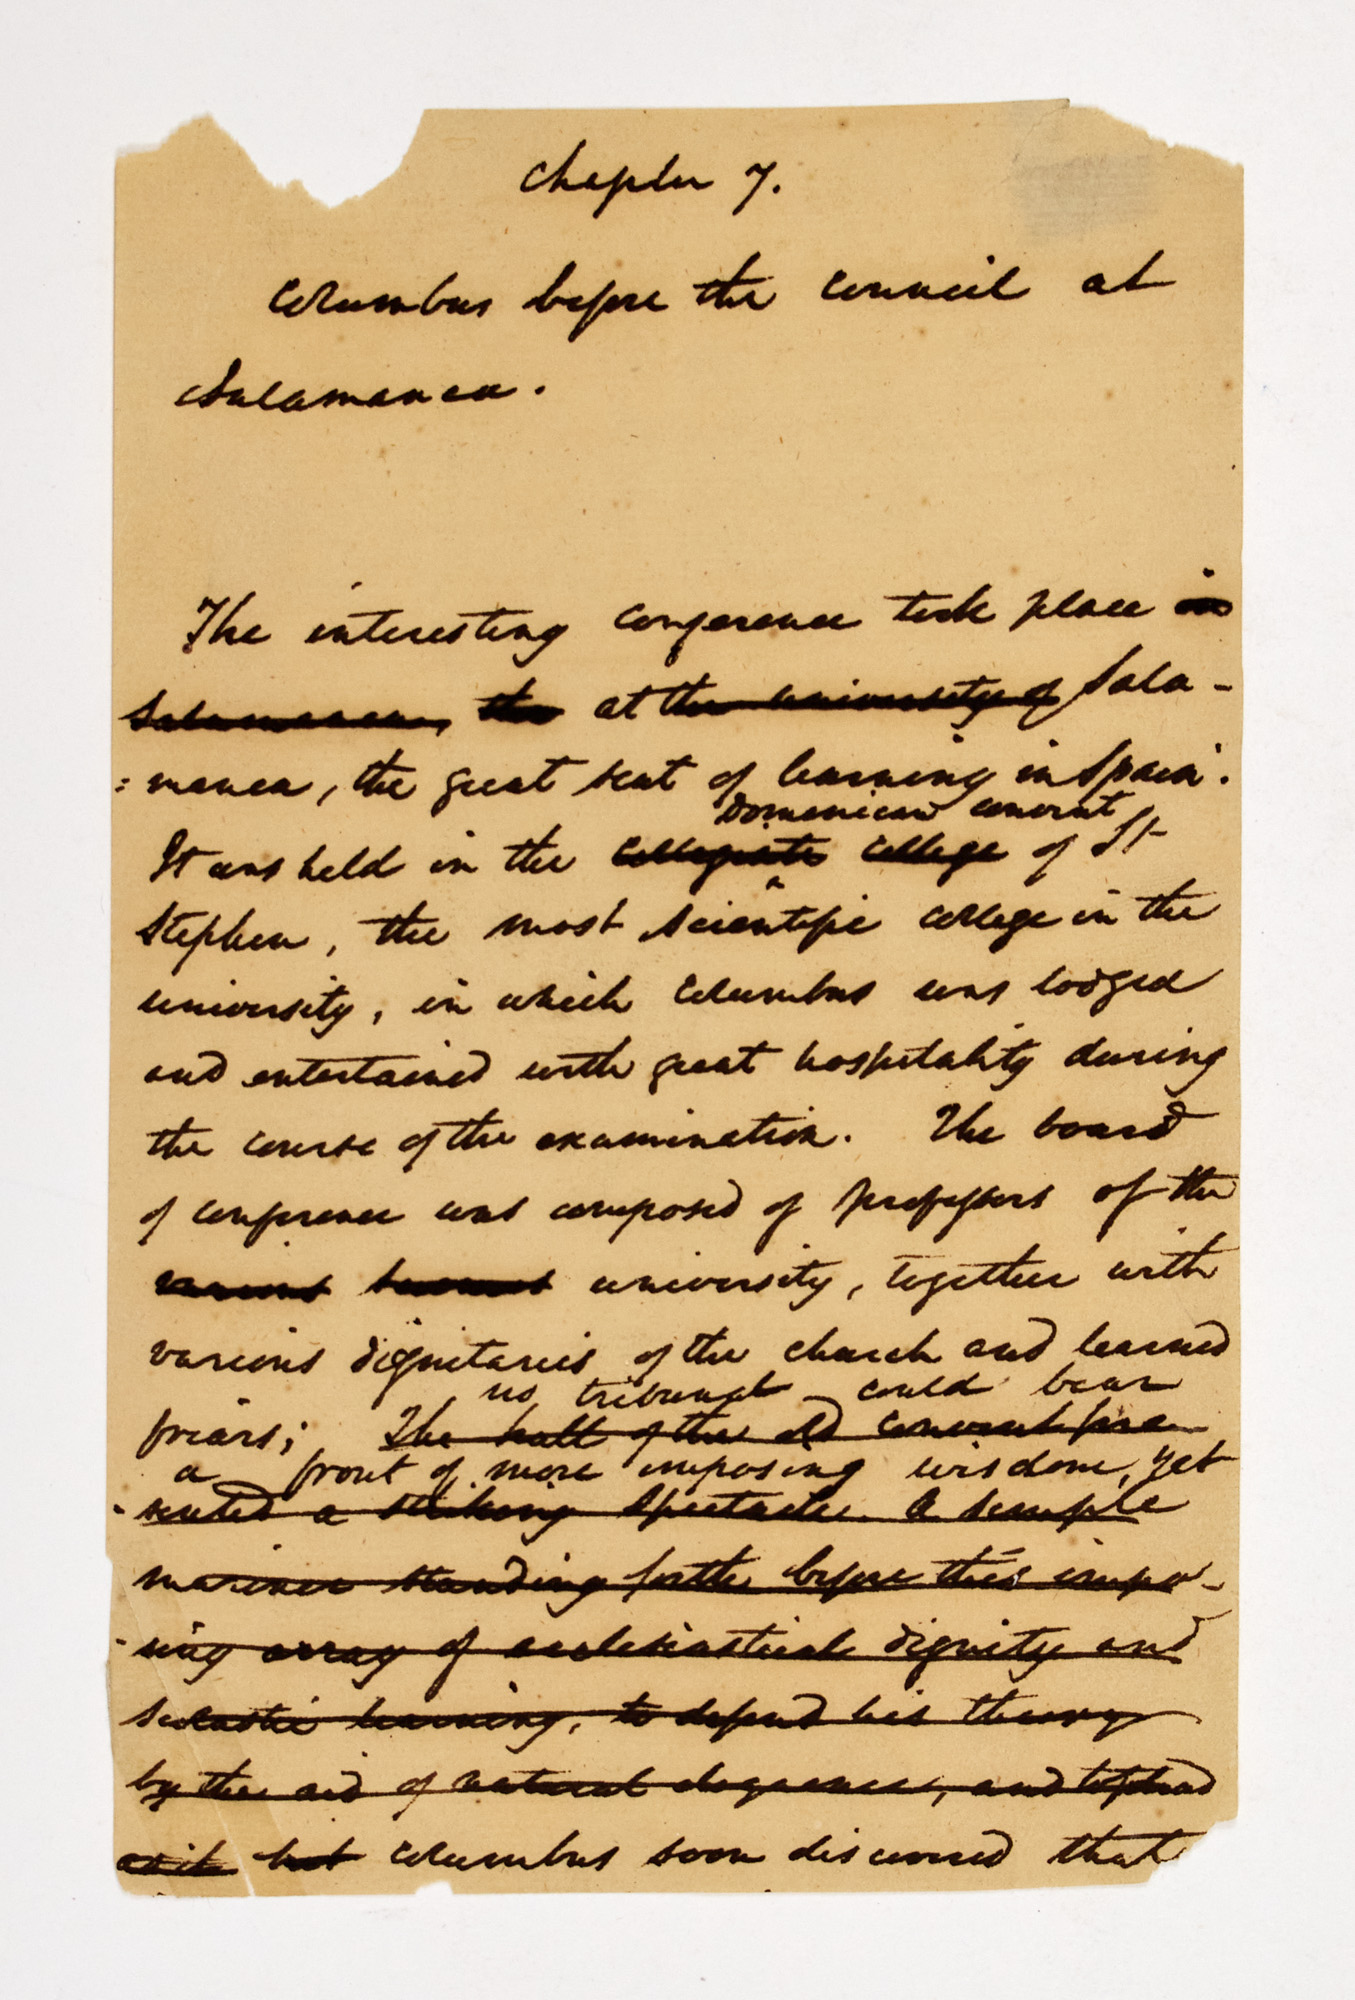 Chapter 7.
Columbus before the council at
Salamanca.
The interesting conference took place in
Salamanca, the at the university of Sala-
=manca, the great seat of learning in Spain.
Domenican convent
It was held in the collegiate college of St
Stephen, the most scientific college in the
university, in which Columbus was lodged
and entertained with great hospitality during
the course of the examination. The board
of conference was composed of professors of the
various learned university, together with
various dignitaries of the church and learned
no tribunal could bear
friars; The hall of the old convent pre
a front of more imposing wisdom, yet
-sented a striking spectacle. A simple
mariner standing forth before this impo-
-sing array of ecclesiastical dignity and
scolastic learning, to defend his theory
by the aid of natural eloquence, and to plead
as it but Columbus soon discovered that